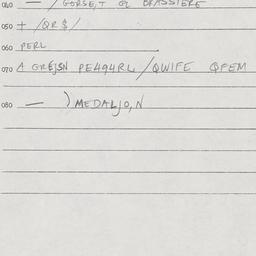 040 — / GORSE,T OZ BRASSIERE
050 + /QR $/
060 PERL
070 A GREJSN PE494RL /QWIFE QFEM
080 — ) MEDALJO,N